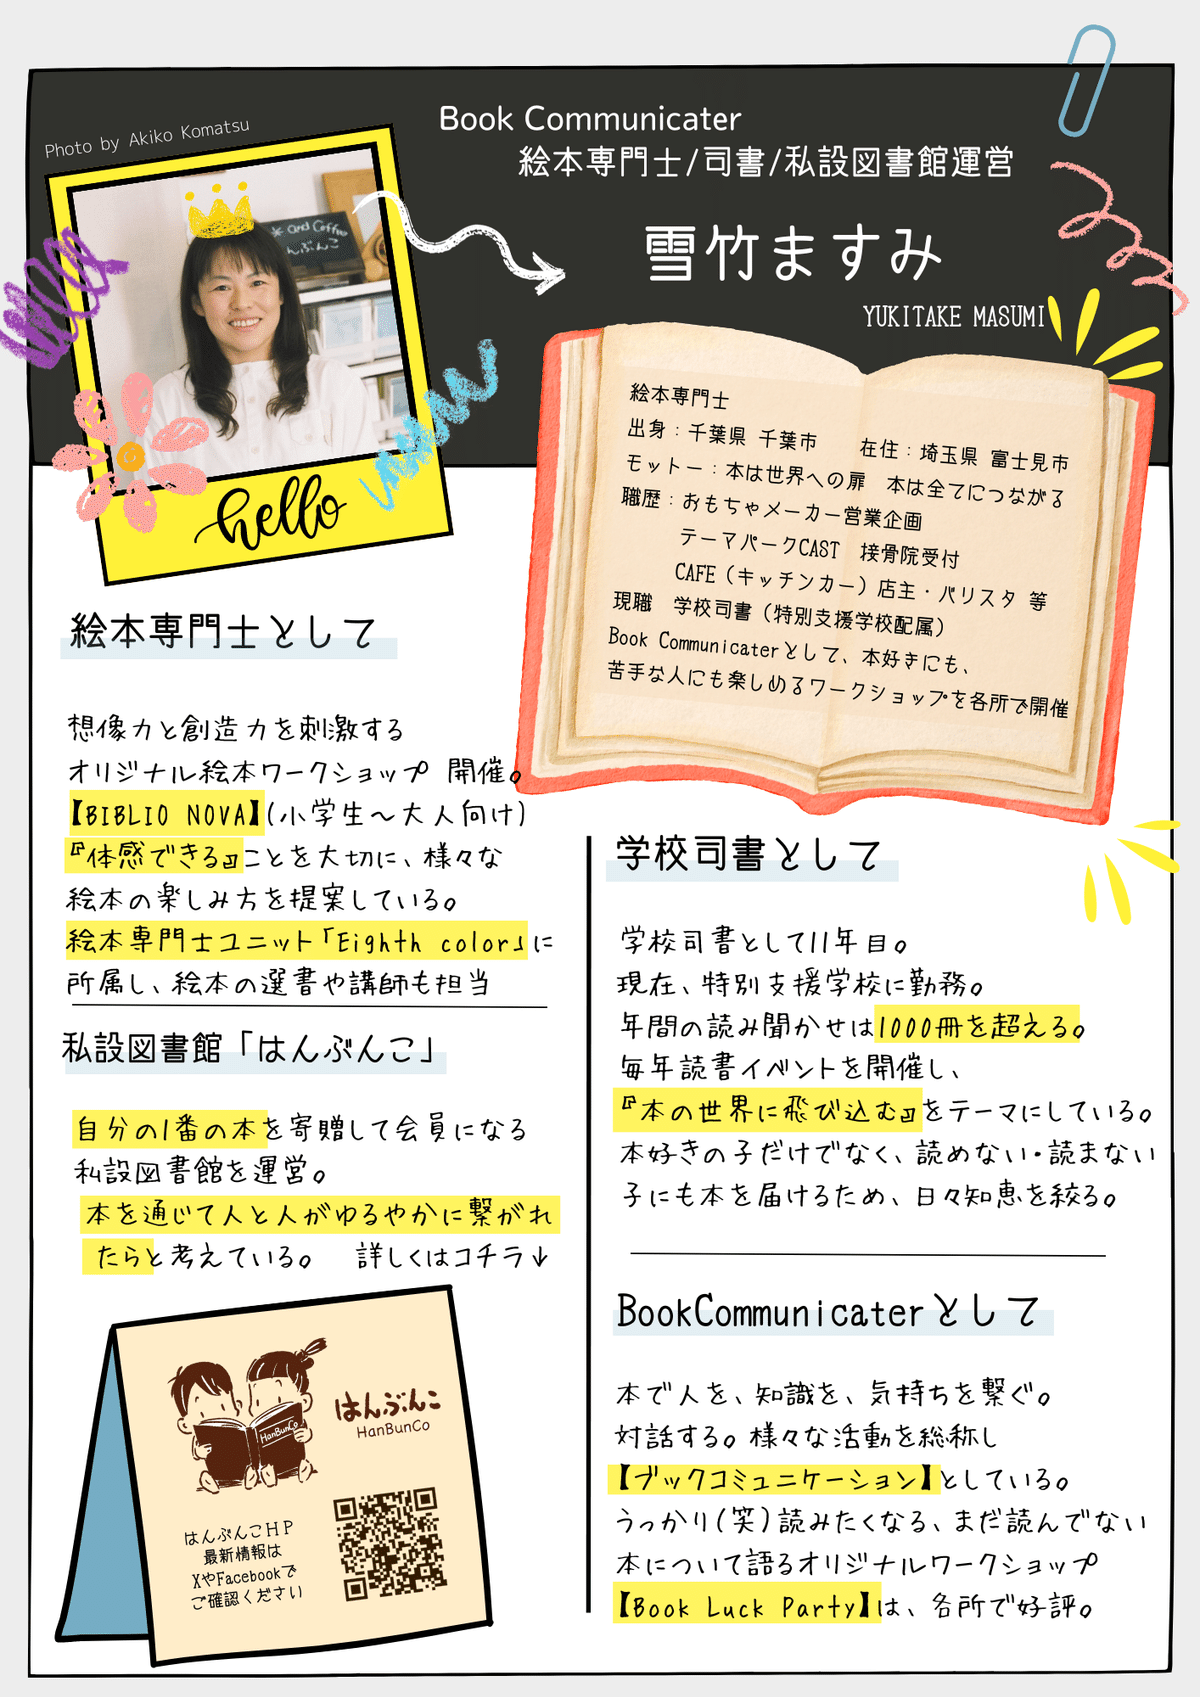 Photo by Akiko Komatsu
Book Communicater
絵本専門士/司書/私設図書館運営
雪竹ますみ
YUKITAKE MASUMI
hello
絵本専門士
出身：千葉県 千葉市　在住：埼玉県 富士見市
モットー：本は世界への扉　本は全てにつながる
職歴：おもちゃメーカー営業企画
テーマパークCAST　接骨院受付
CAFE（キッチンカー）店主・バリスタ 等
現職　学校司書（特別支援学校配属）
Book Communicaterとして、本好きにも、
苦手な人にも楽しめるワークショップを各所で開催
絵本専門士として
想像力と創造力を刺激する
オリジナル絵本ワークショップ 開催。
【BIBLIO NOVA】(小学生～大人向け)
『体感できる』ことを大切に、様々な
絵本の楽しみ方を提案している。
絵本専門士ユニット「Eighth color」に
所属し、絵本の選書や講師も担当
私設図書館「はんぶんこ」
自分の1番の本を寄贈して会員になる
私設図書館を運営。
本を通じて人と人がゆるやかに繋がれ
たらと考えている。　詳しくはコチラ↓
はんぶんこ
HanBunCo
HanBunCo
はんぶんこHP
最新情報は
XやFacebookで
ご確認ください
学校司書として
学校司書として11年目。
現在、特別支援学校に勤務。
年間の読み聞かせは1000冊を超える。
毎年読書イベントを開催し、
『本の世界に飛び込む』をテーマにしている。
本好きの子だけでなく、読めない・読まない
子にも本を届けるため、日々知恵を絞る。
BookCommunicaterとして
本で人を、知識を、気持ちを繋ぐ。
対話する。様々な活動を総称し
【ブックコミュニケーション】としている。
うっかり(笑)読みたくなる、まだ読んでない
本について語るオリジナルワークショップ
【Book Luck Party】は、各所で好評。